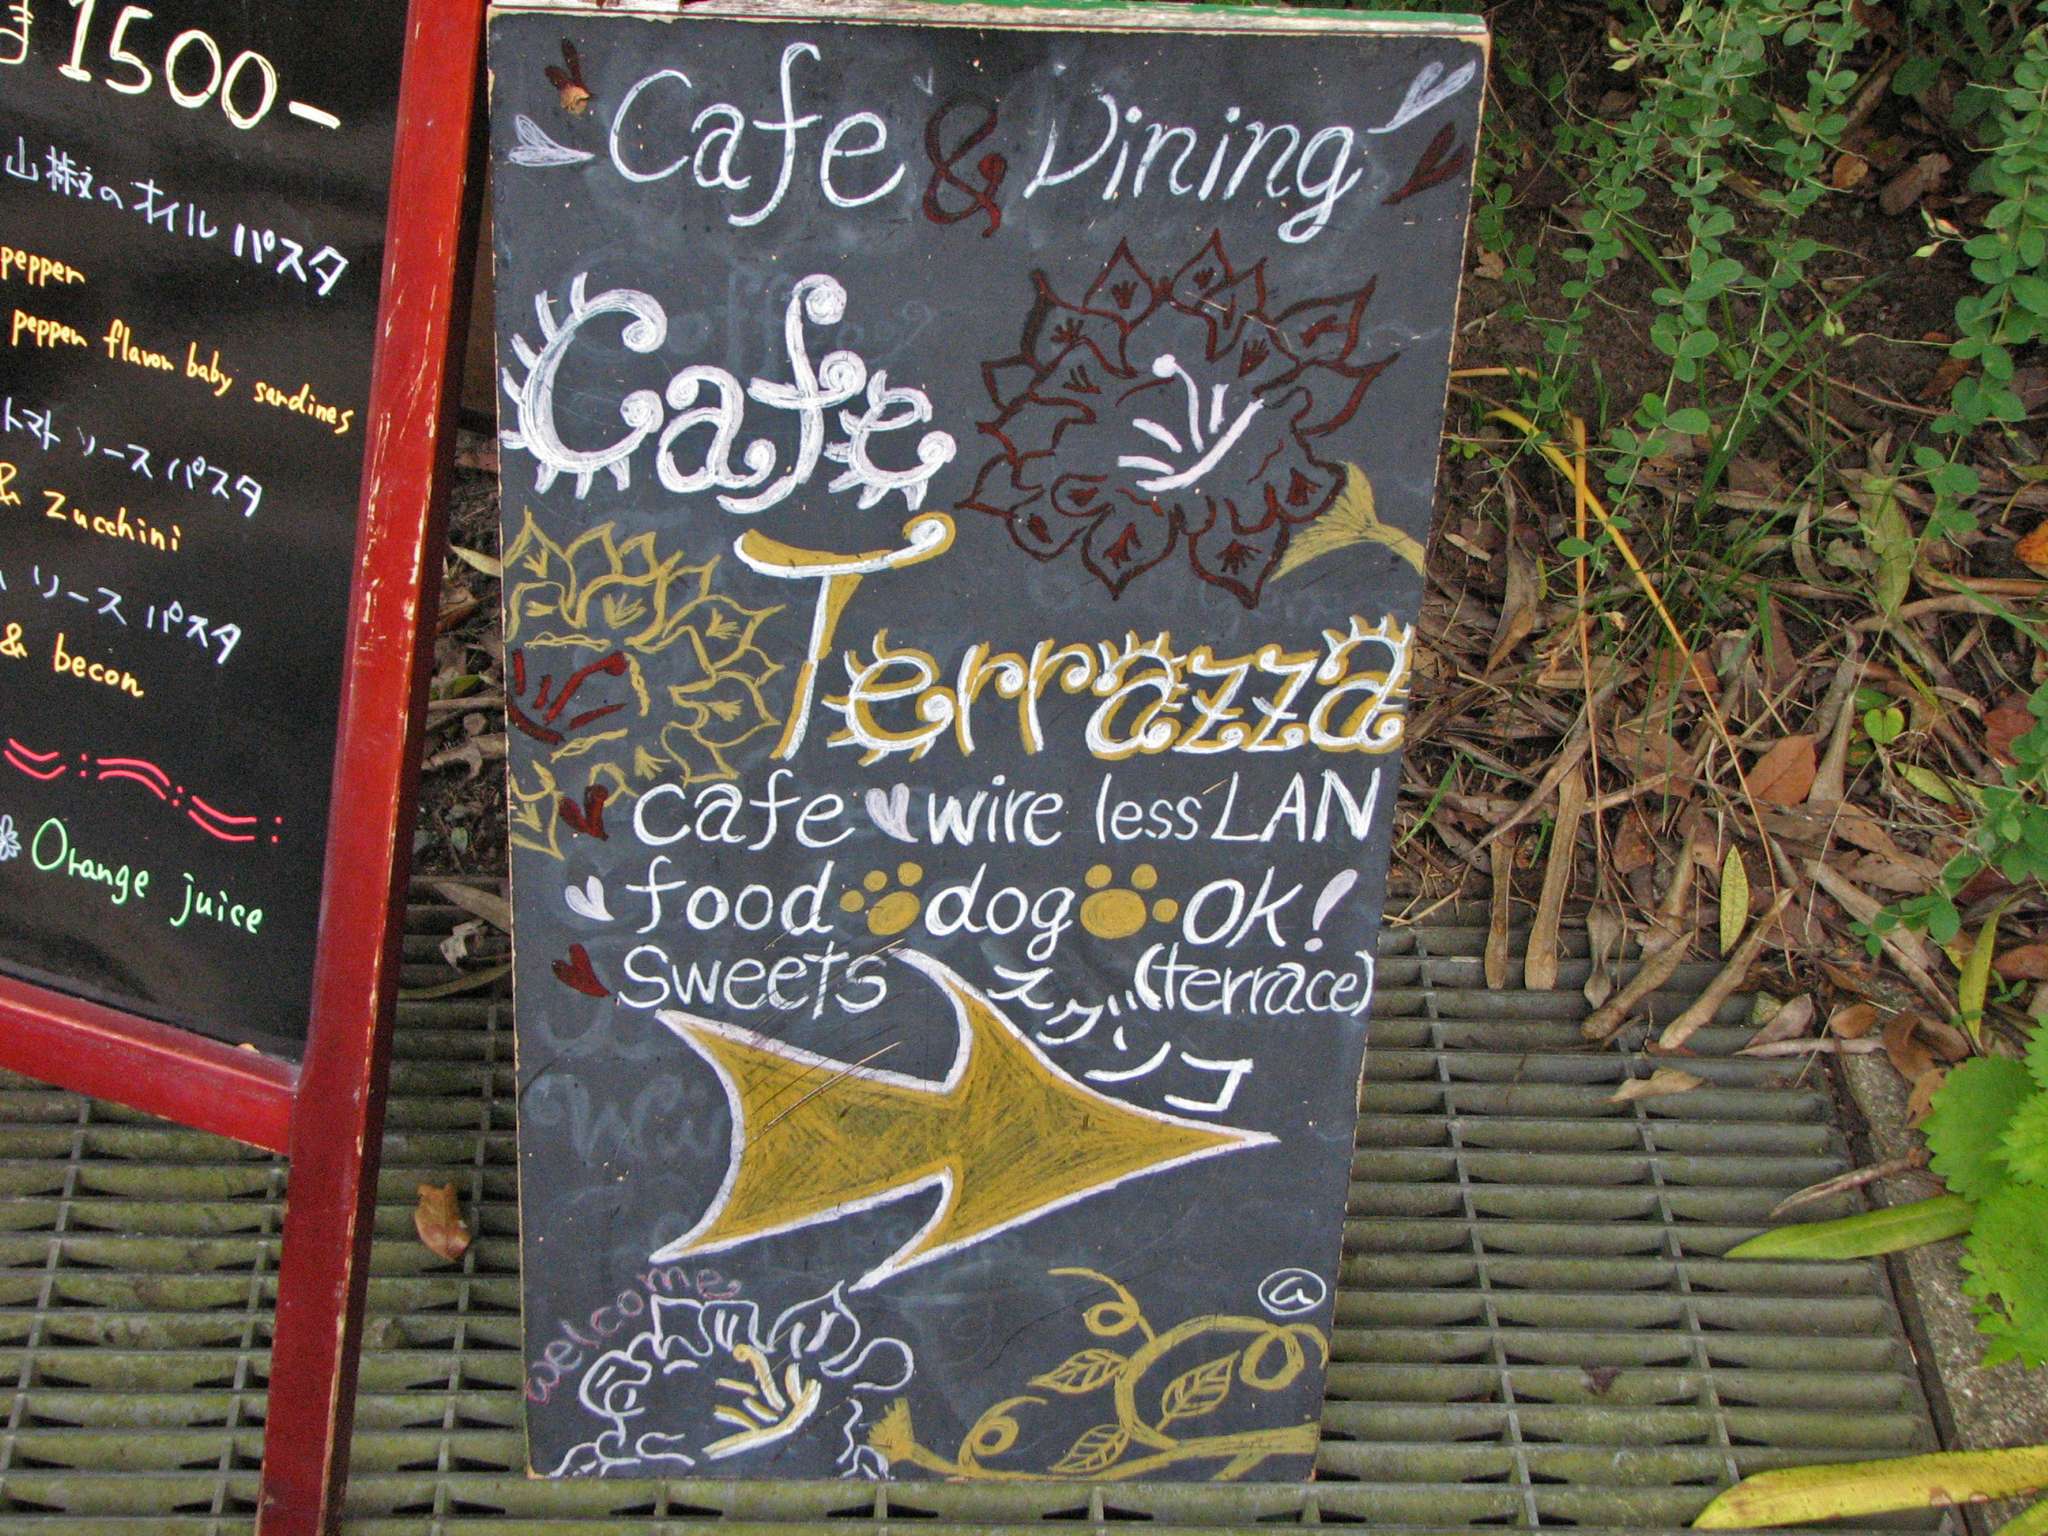 1500-
山椒のオイルパスタ
pepper
pepper flavor baby sardines
トマトソースパスタ
& Zucchini
ソースパスタ
& becon
Orange juice
Cafe & Dining
Cafe
Terrazza
cafe wire less LAN
food dog OK!
sweets (terrace)
スグソコ
welcome
a